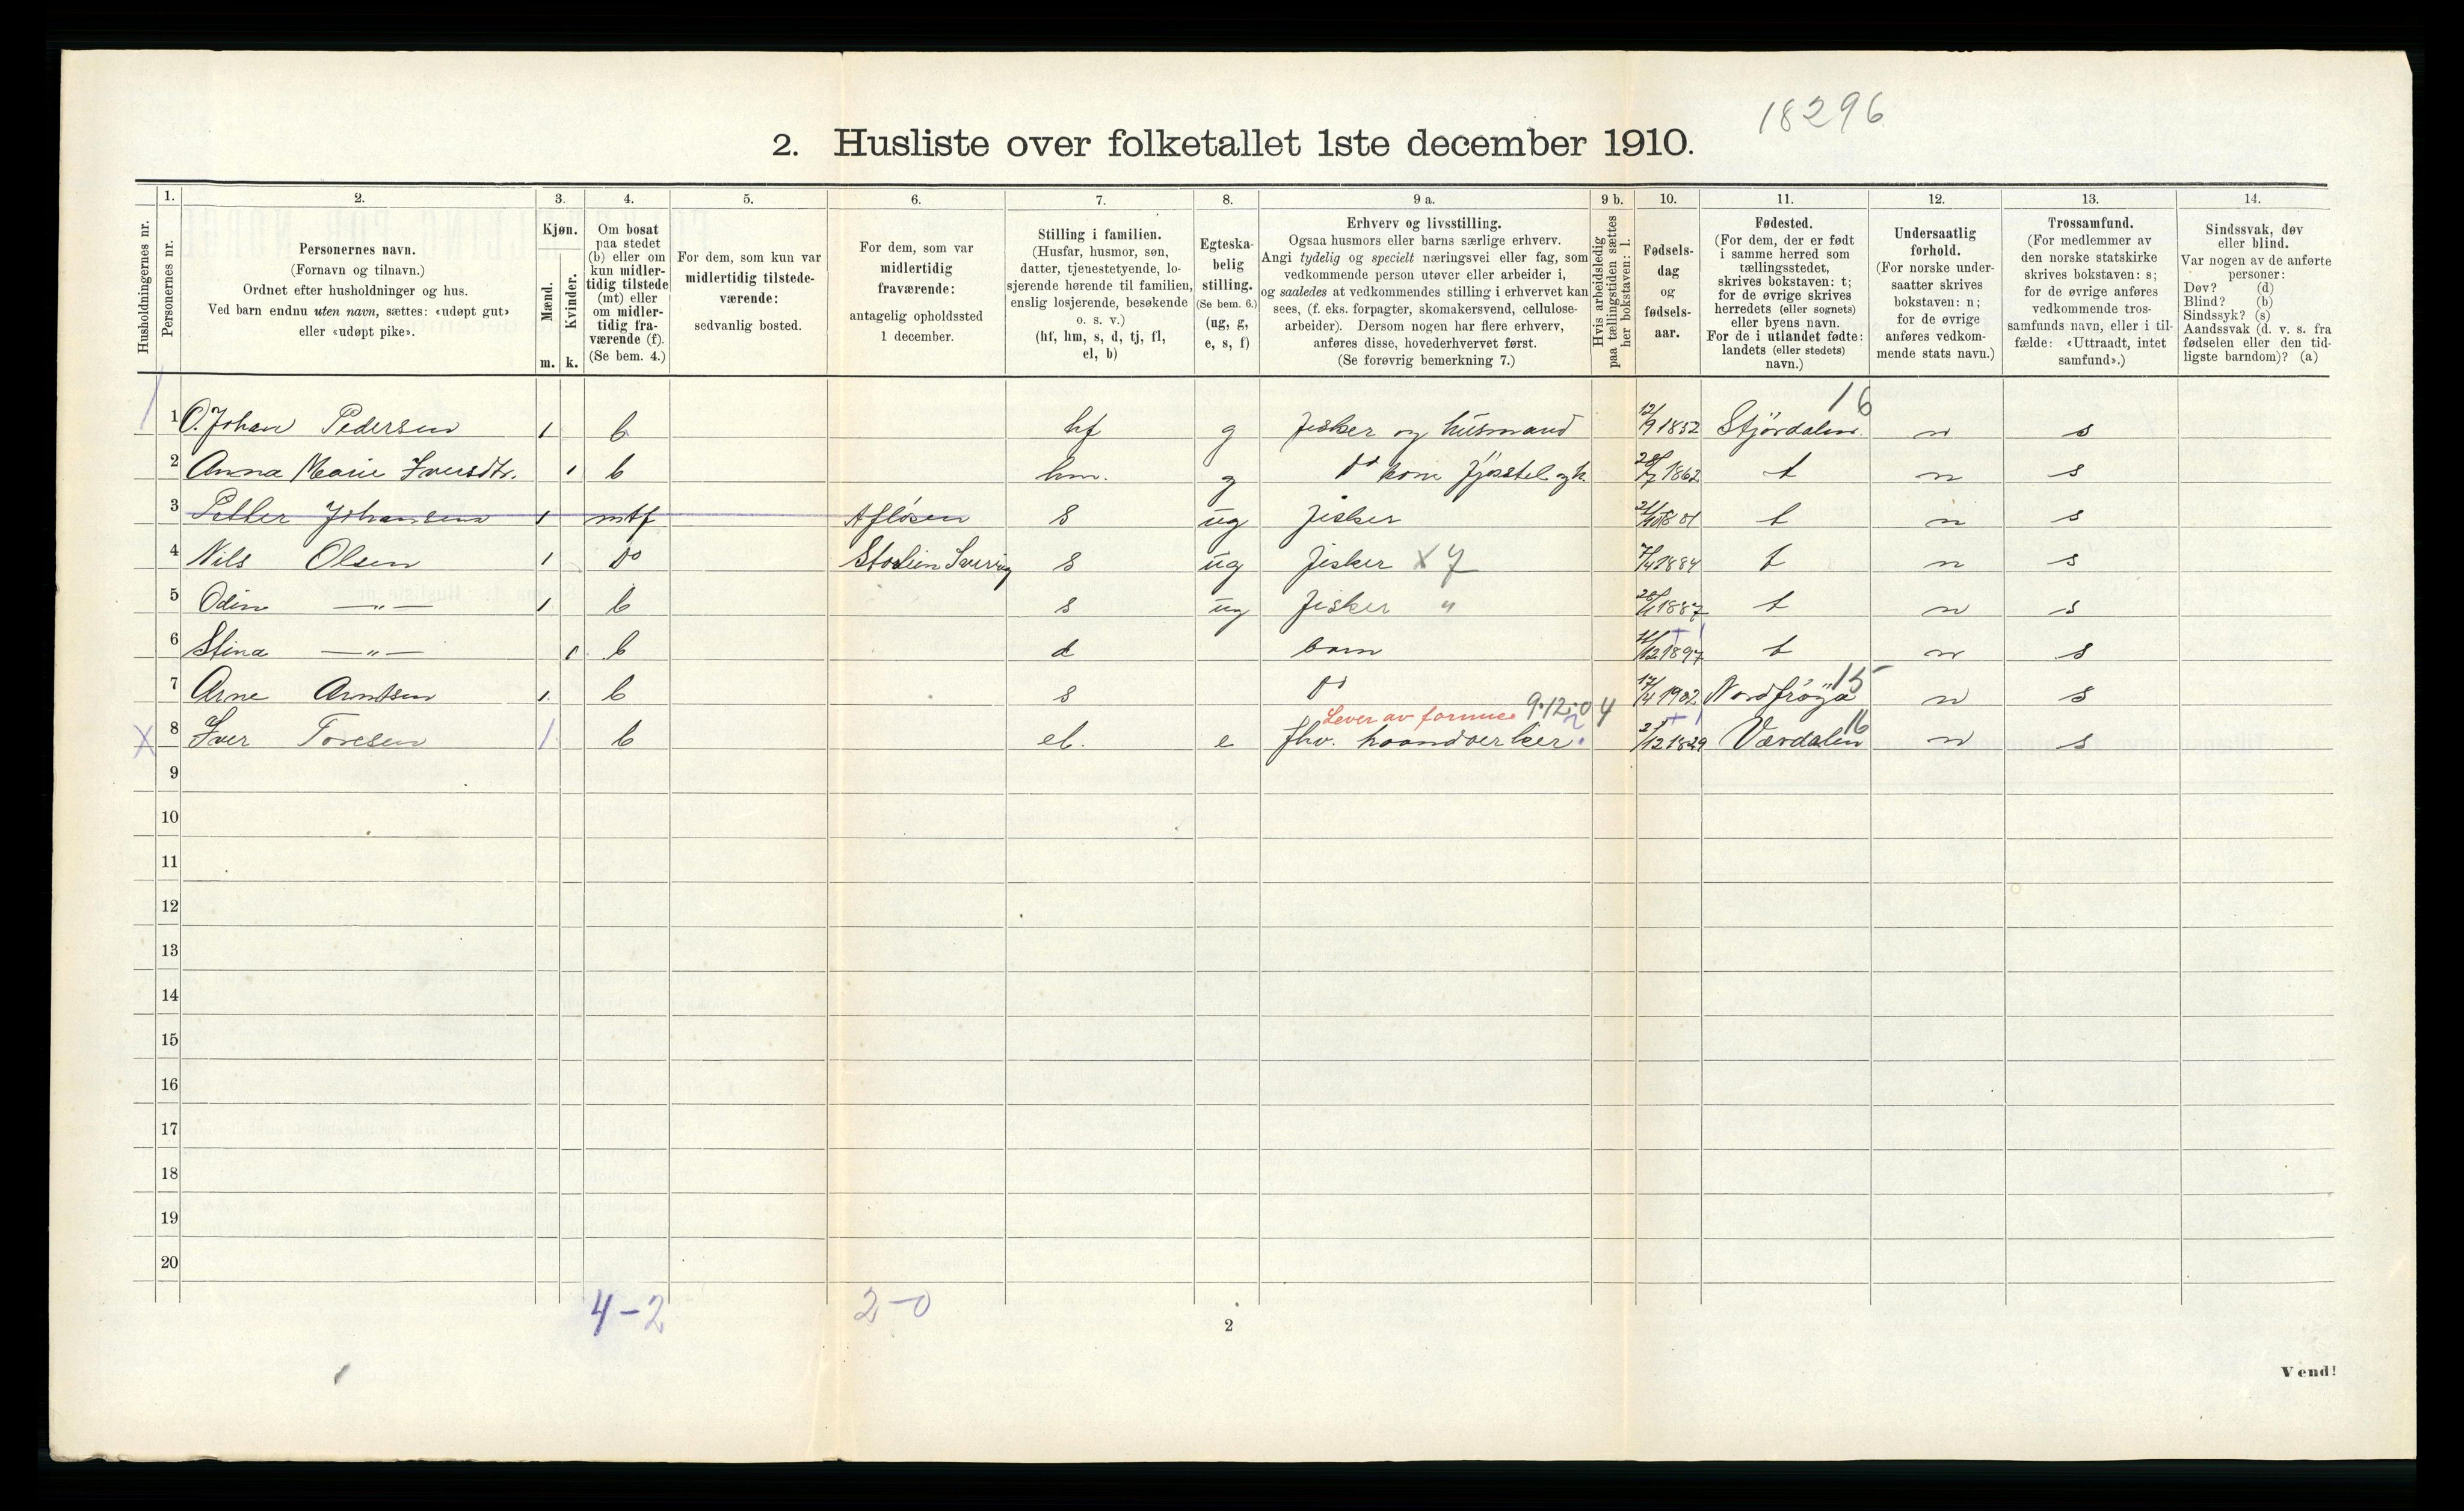 18296
2. Husliste over folketallet 1ste december 1910.
Husholdningernes nr.
1.
Personernes nr.
2.
Personernes navn.
(Fornavn og tilnavn.)
Ordnet efter husholdninger og hus.
Ved barn endnu uten navn, sættes: «udøpt gut»
eller «udøpt pike».
3.
Kjøn.
Mænd.
Kvinder.
m. k.
4.
Om bosat
paa stedet
(b) eller om
kun midler-
tidig tilstede
(mt) eller
om midler-
tidig fra-
værende (f).
(Se bem. 4.)
5.
For dem, som kun var
midlertidig tilstede-
værende:
sedvanlig bosted.
6.
For dem, som var
midlertidig
fraværende:
antagelig opholdssted
1 december.
7.
Stilling i familien.
(Husfar, husmor, søn,
datter, tjenestetyende, lo-
sjerende hørende til familien,
enslig losjerende, besøkende
o. s. v.)
(hf, hm, s, d, tj, fl,
el, b)
8.
Egteska-
belig
stilling.
(Se bem. 6.)
(ug, g,
e, s, f)
9 a.
Erhverv og livsstilling.
Ogsaa husmors eller barns særlige erhverv.
Angi tydelig og specielt næringsvei eller fag, som
vedkommende person utøver eller arbeider i,
og saaledes at vedkommendes stilling i erhvervet kan
sees, (f. eks. forpagter, skomakersvend, cellulose-
arbeider). Dersom nogen har flere erhverv,
anføres disse, hovederhvervet først.
(Se forøvrig bemerkning 7.)
9 b.
Hvis arbeidsledig
paa tællingstiden sættes
her bokstaven: l.
10.
Fødsels-
dag
og
fødsels-
aar.
11.
Fødested.
(For dem, der er født
i samme herred som
tællingsstedet,
skrives bokstaven: t;
for de øvrige skrives
herredets (eller sognets)
eller byens navn.
For de i utlandet fødte:
landets (eller stedets)
navn.)
12.
Undersaatlig
forhold.
(For norske under-
saatter skrives
bokstaven: n;
for de øvrige
anføres vedkom-
mende stats navn.)
13.
Trossamfund.
(For medlemmer av
den norske statskirke
skrives bokstaven: s;
for de øvrige anføres
vedkommende tros-
samfunds navn, eller i til-
fælde: «Uttraadt, intet
samfund».)
14.
Sindssvak, døv
eller blind.
Var nogen av de anførte
personer:
Døv? (d)
Blind? (b)
Sindssyk? (s)
Aandssvak (d. v. s. fra
fødselen eller den tid-
ligste barndom)? (a)
16
1 O. Johan Pedersen 1 b hf g fisker og husmand 12/9 1852 Stjørdalen n s
2 Anna Marie Iversdtr. 1 b hm. g do kone fjøsstel 28/7 1862 t n s
3 Petter Johansen 1 mtf Afløsen s ug fisker t n s
4 Nils Olsen 1 do Storlien Sverrig s ug fisker x 7 7/4 1884 t n s
5 Odin —„— 1 b s ug fisker „ 28/1 1887 t n s
6 Stina —„— 1 b d barn 12 1897 t n s
15
7 Arne Arntsen 1 b s do 17/4 1902 Nordfrøya n s
Lever av formue 9.12.04
16
x 8 Iver Toresen 1 b el. e fhv. haandverker. 2/12 1829 Værdalen n s
9
10
11
12
13
14
15
16
17
18
19
20
4-2
2-0
2
Vend!